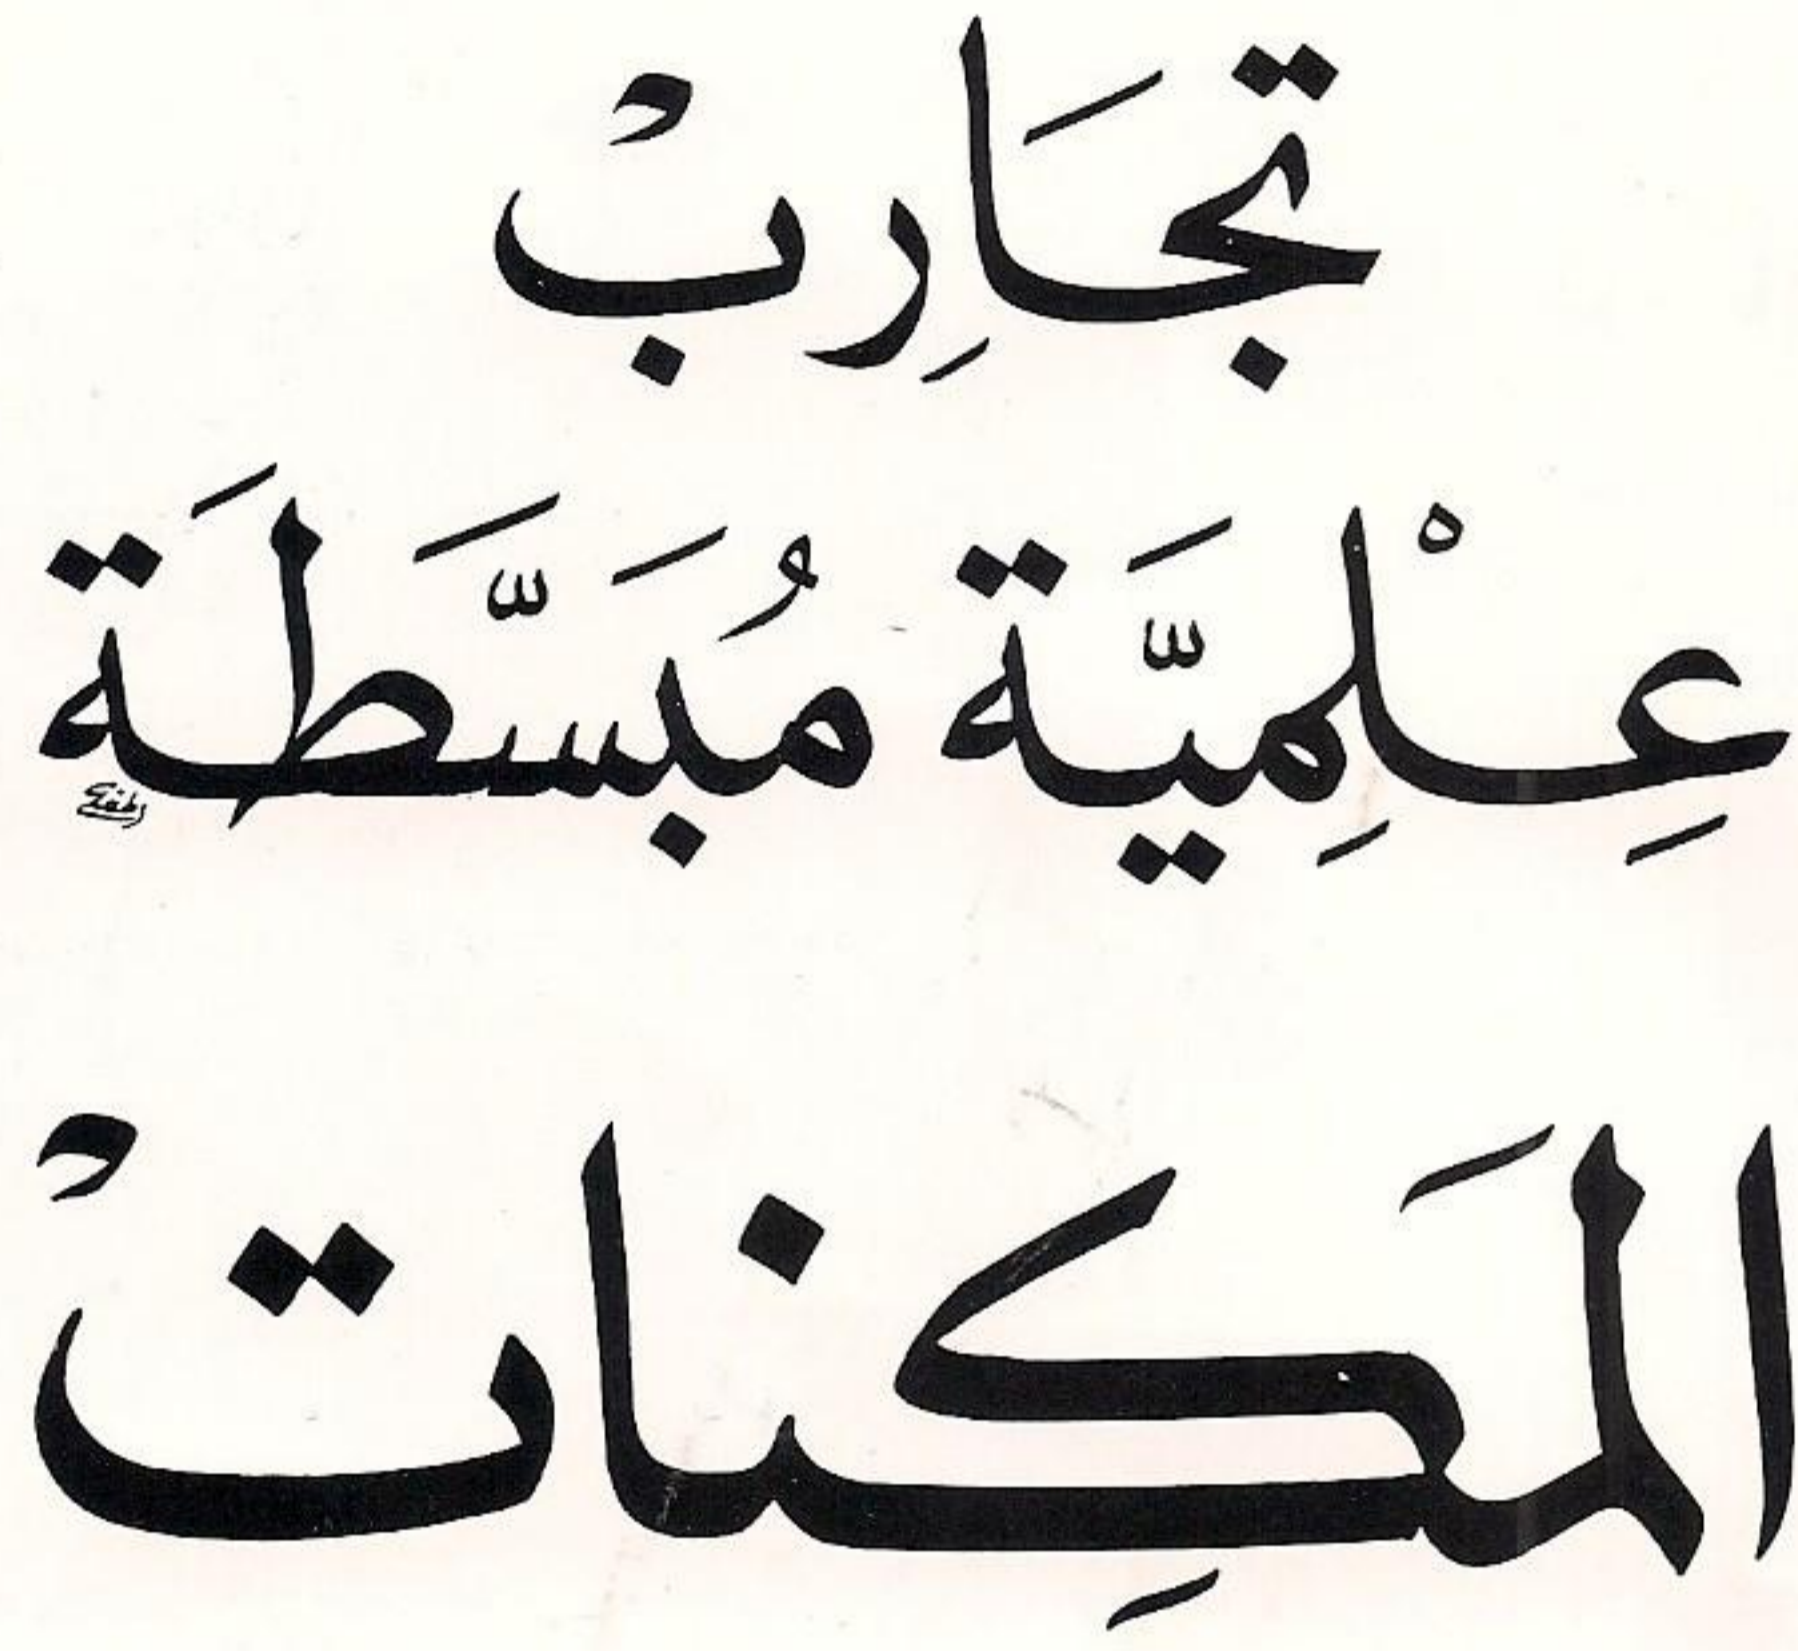 تجَارِبْ
عِلْمِيَّة مُبَسَّطَة
المَكِنات